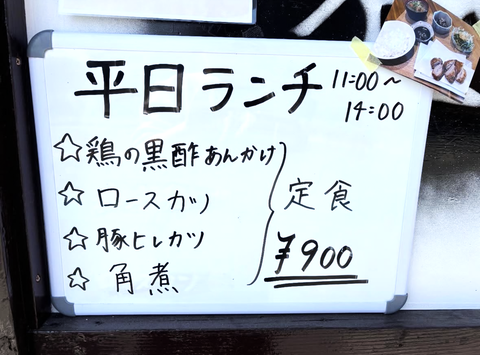 平日ランチ 11:00〜
14:00
☆鶏の黒酢あんかけ
☆ロースカツ
☆豚ヒレカツ
☆角煮
定食
¥900